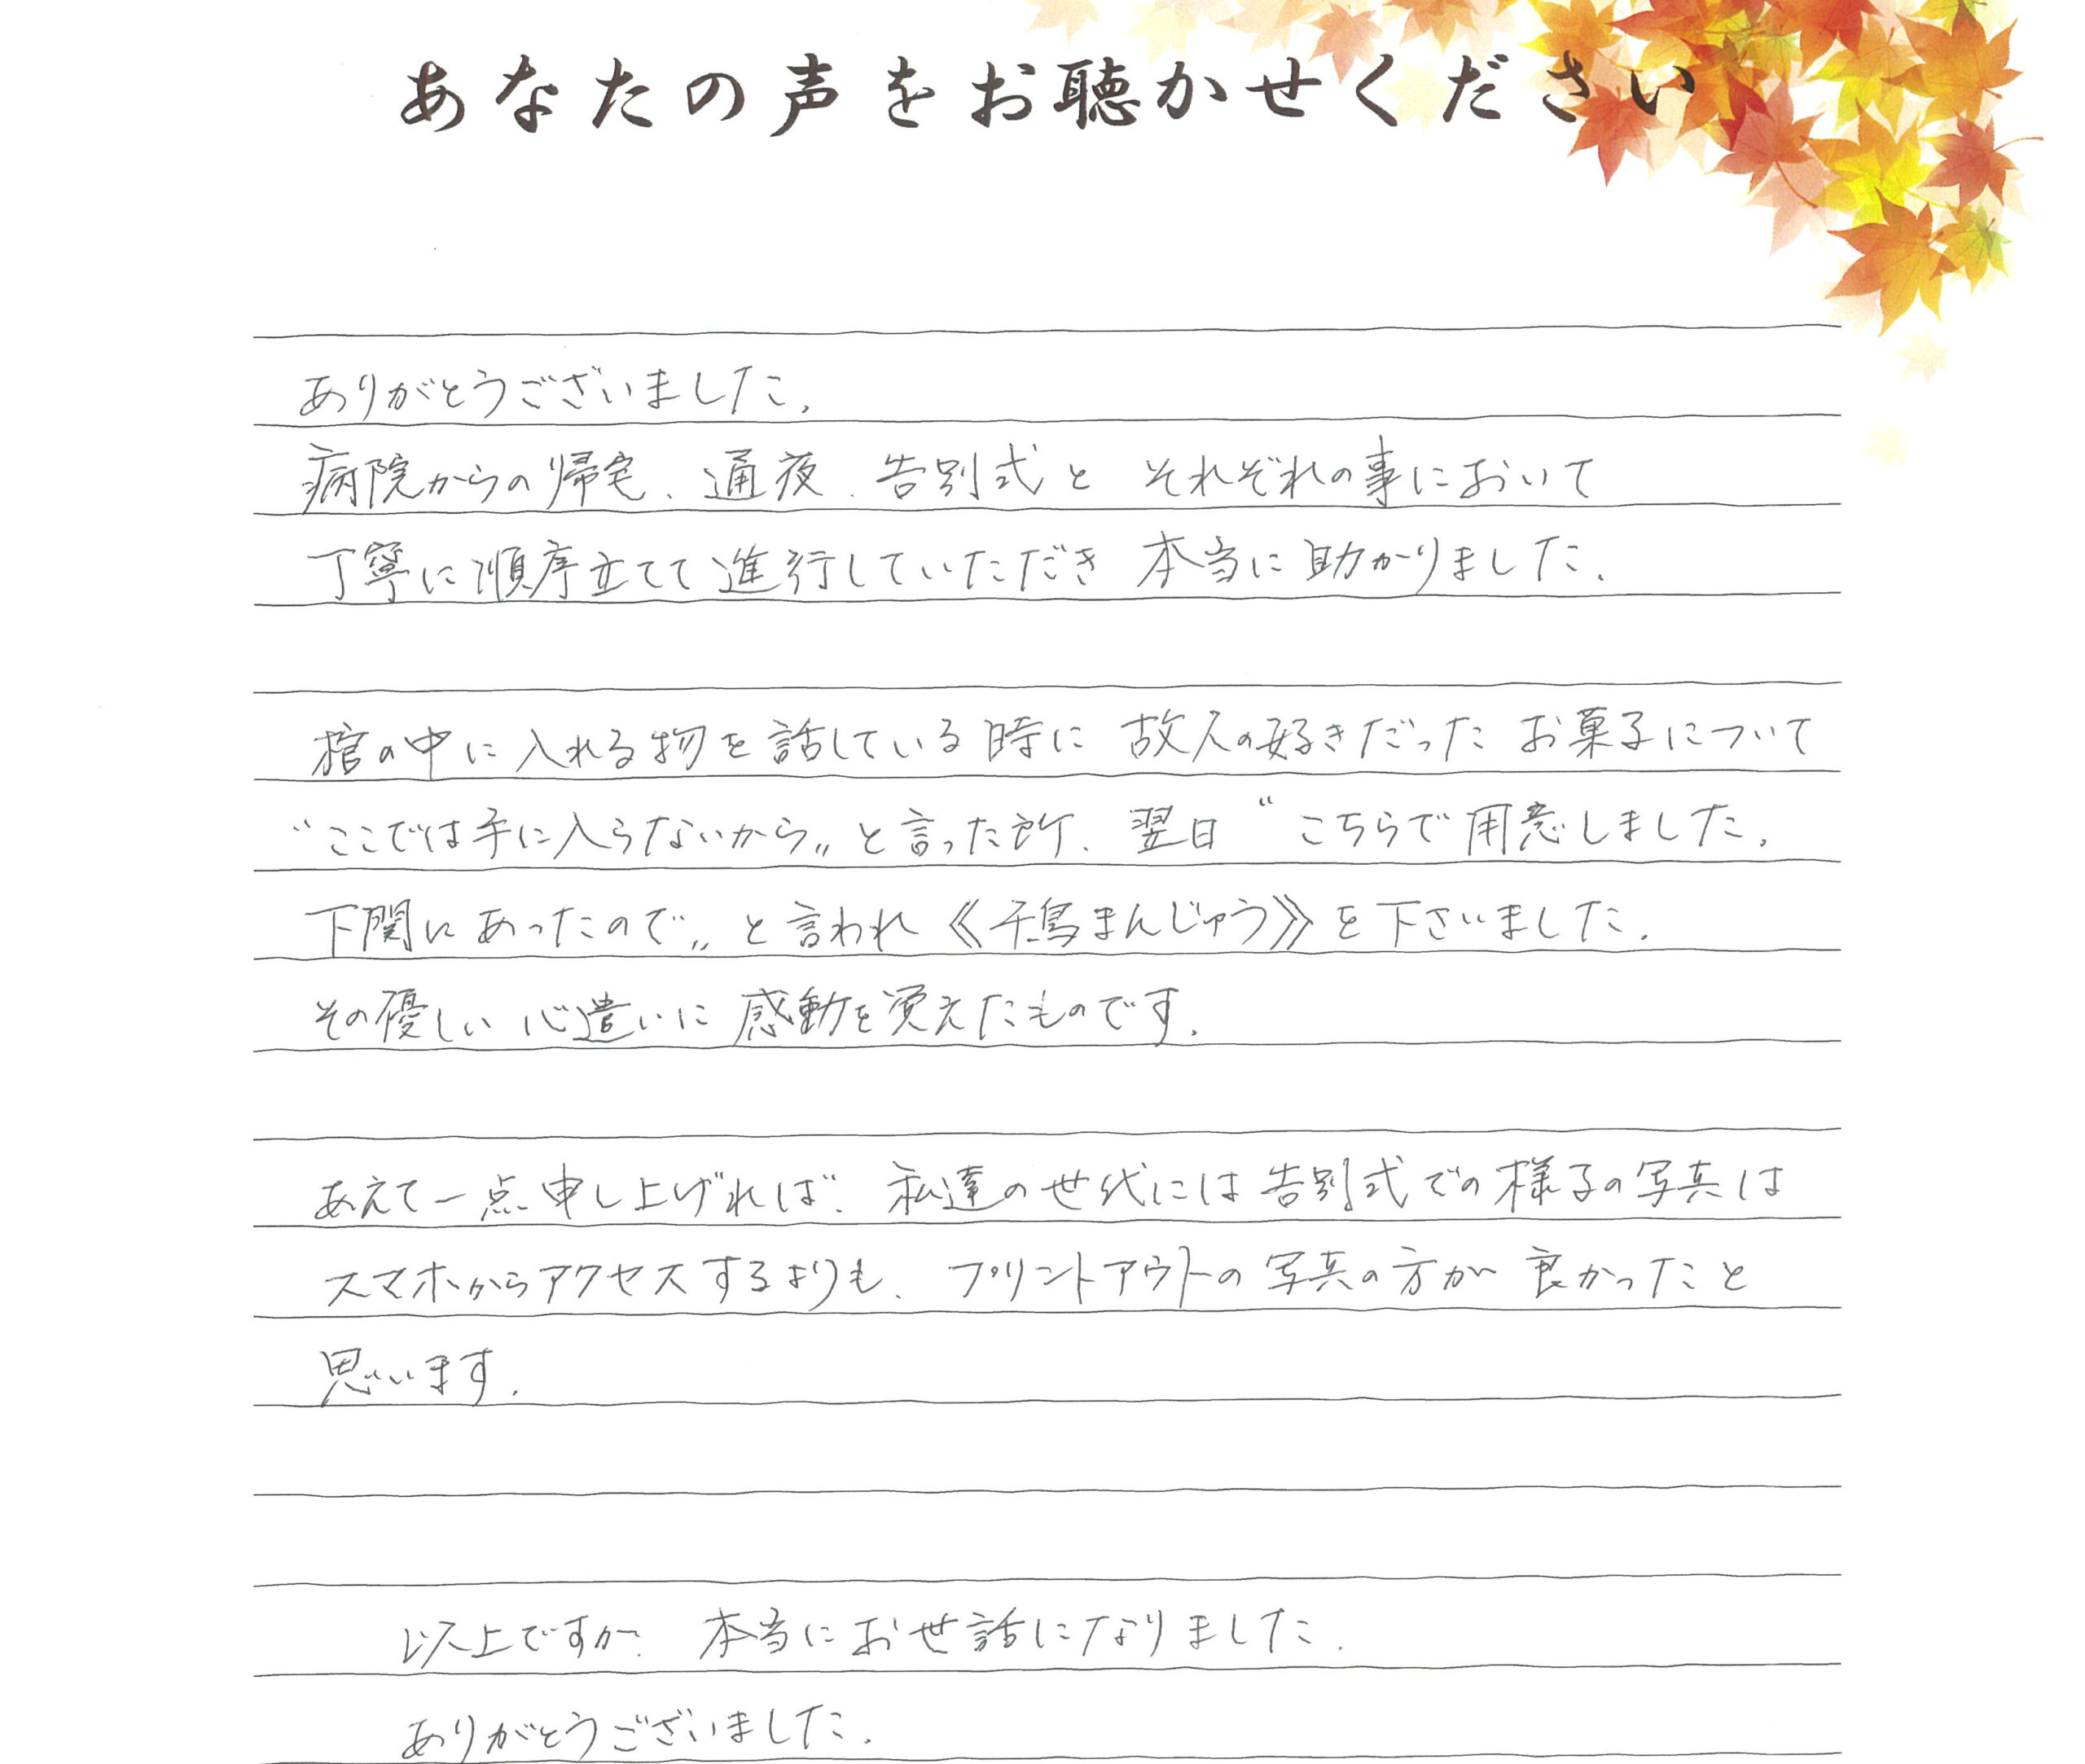 あなたの声をお聴かせください
ありがとうございました。
病院からの帰宅、通夜、告別式と それぞれの事において
丁寧に順序立てて進行していただき 本当に助かりました。
棺の中に入れる物を話している時に 故人の好きだった お菓子について
“ここでは手に入らないから〟と言った所、翌日“こちらで用意しました。
下関にあったので〟と言われ《千鳥まんじゅう》を下さいました。
その優しい心遣いに 感動を覚えたものです。
あえて一点申し上げれば、私達の世代には告別式での様子の写真は
スマホからアクセスするよりも、プリントアウトの写真の方が 良かったと
思います。
以上ですが、本当にお世話になりました。
ありがとうございました。